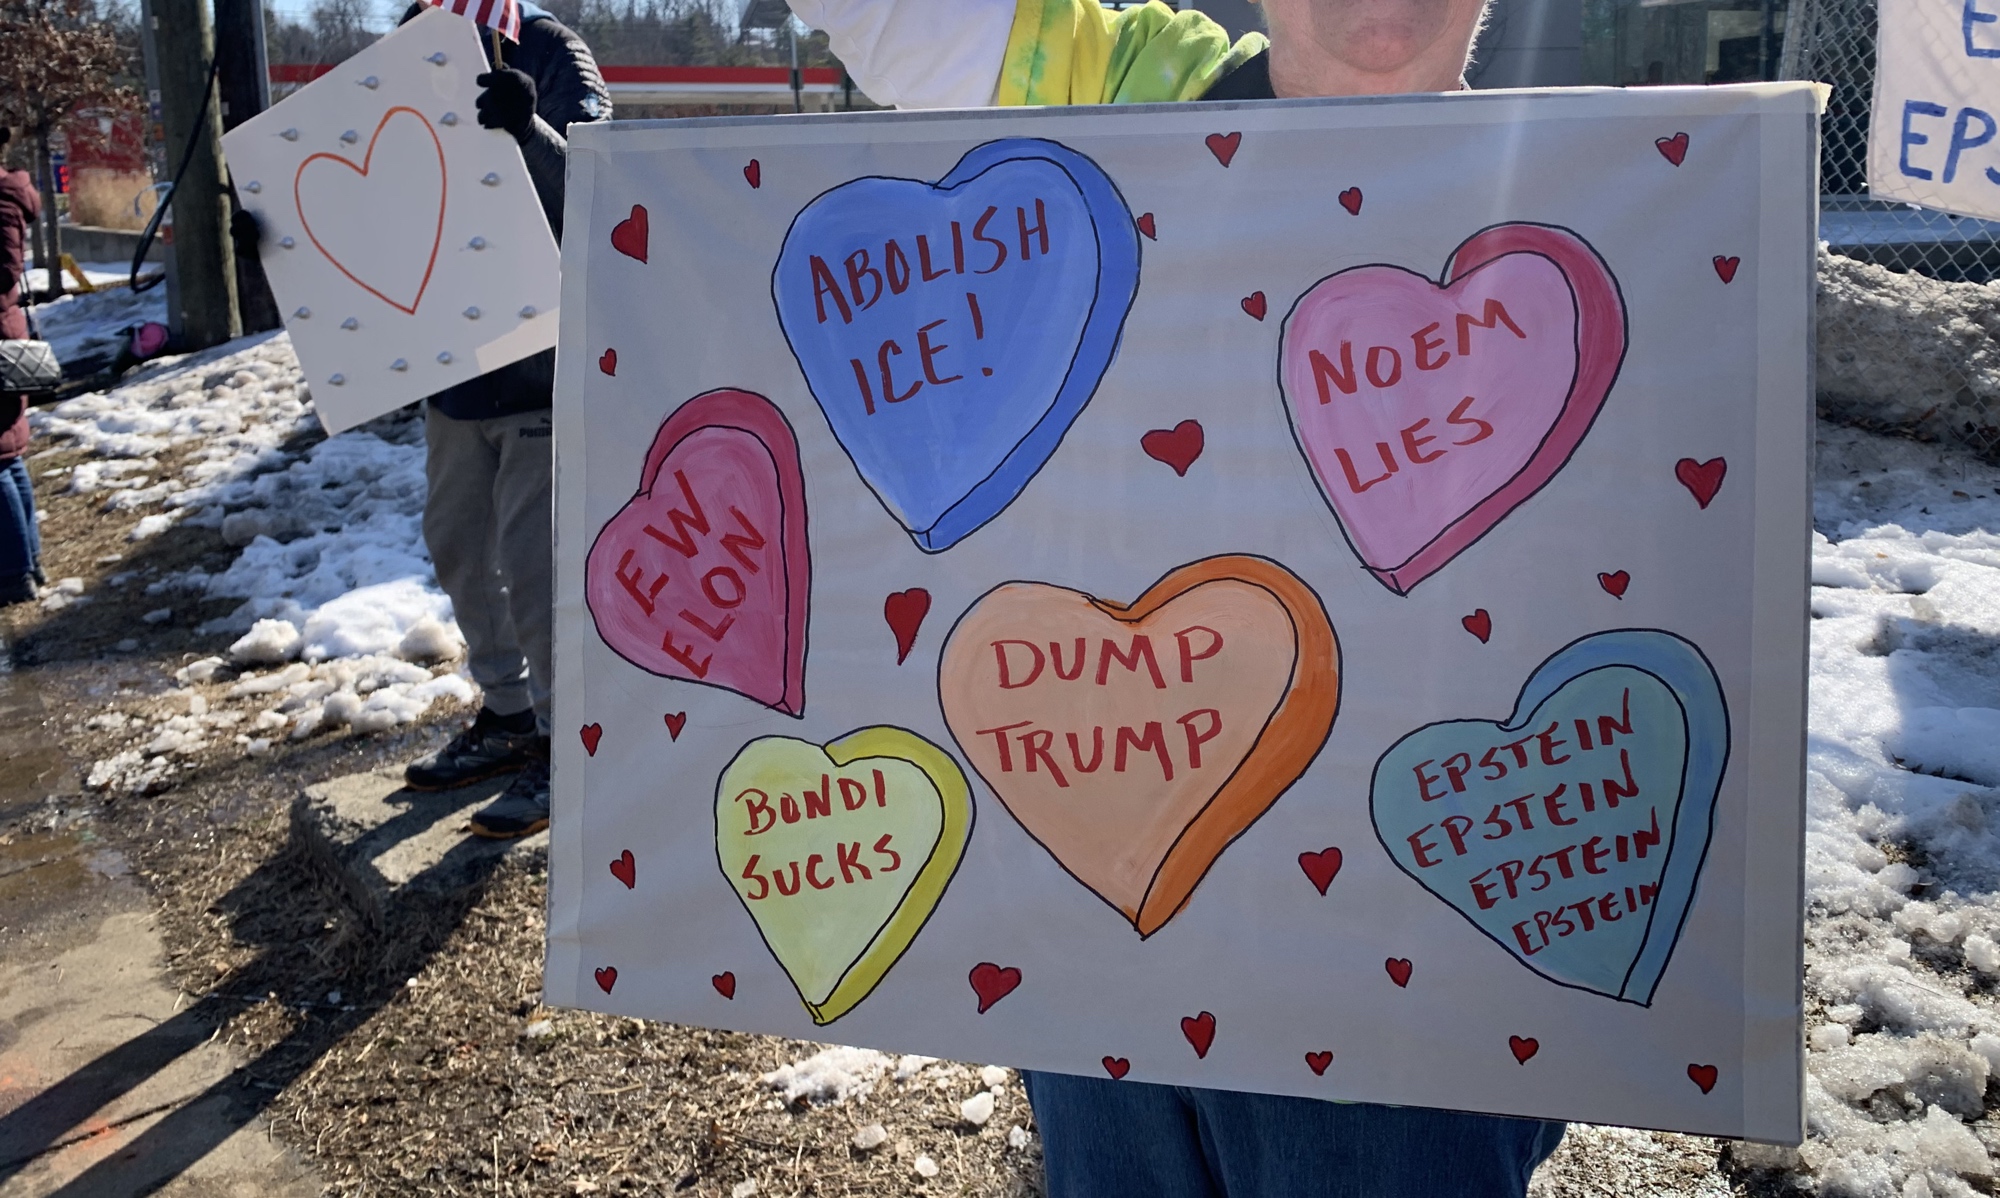 ABOLISH
ICE!
NOEM
LIES
EW
ELON
DUMP
TRUMP
BONDI
SUCKS
EPSTEIN
EPSTEIN
EPSTEIN
EPSTEIN